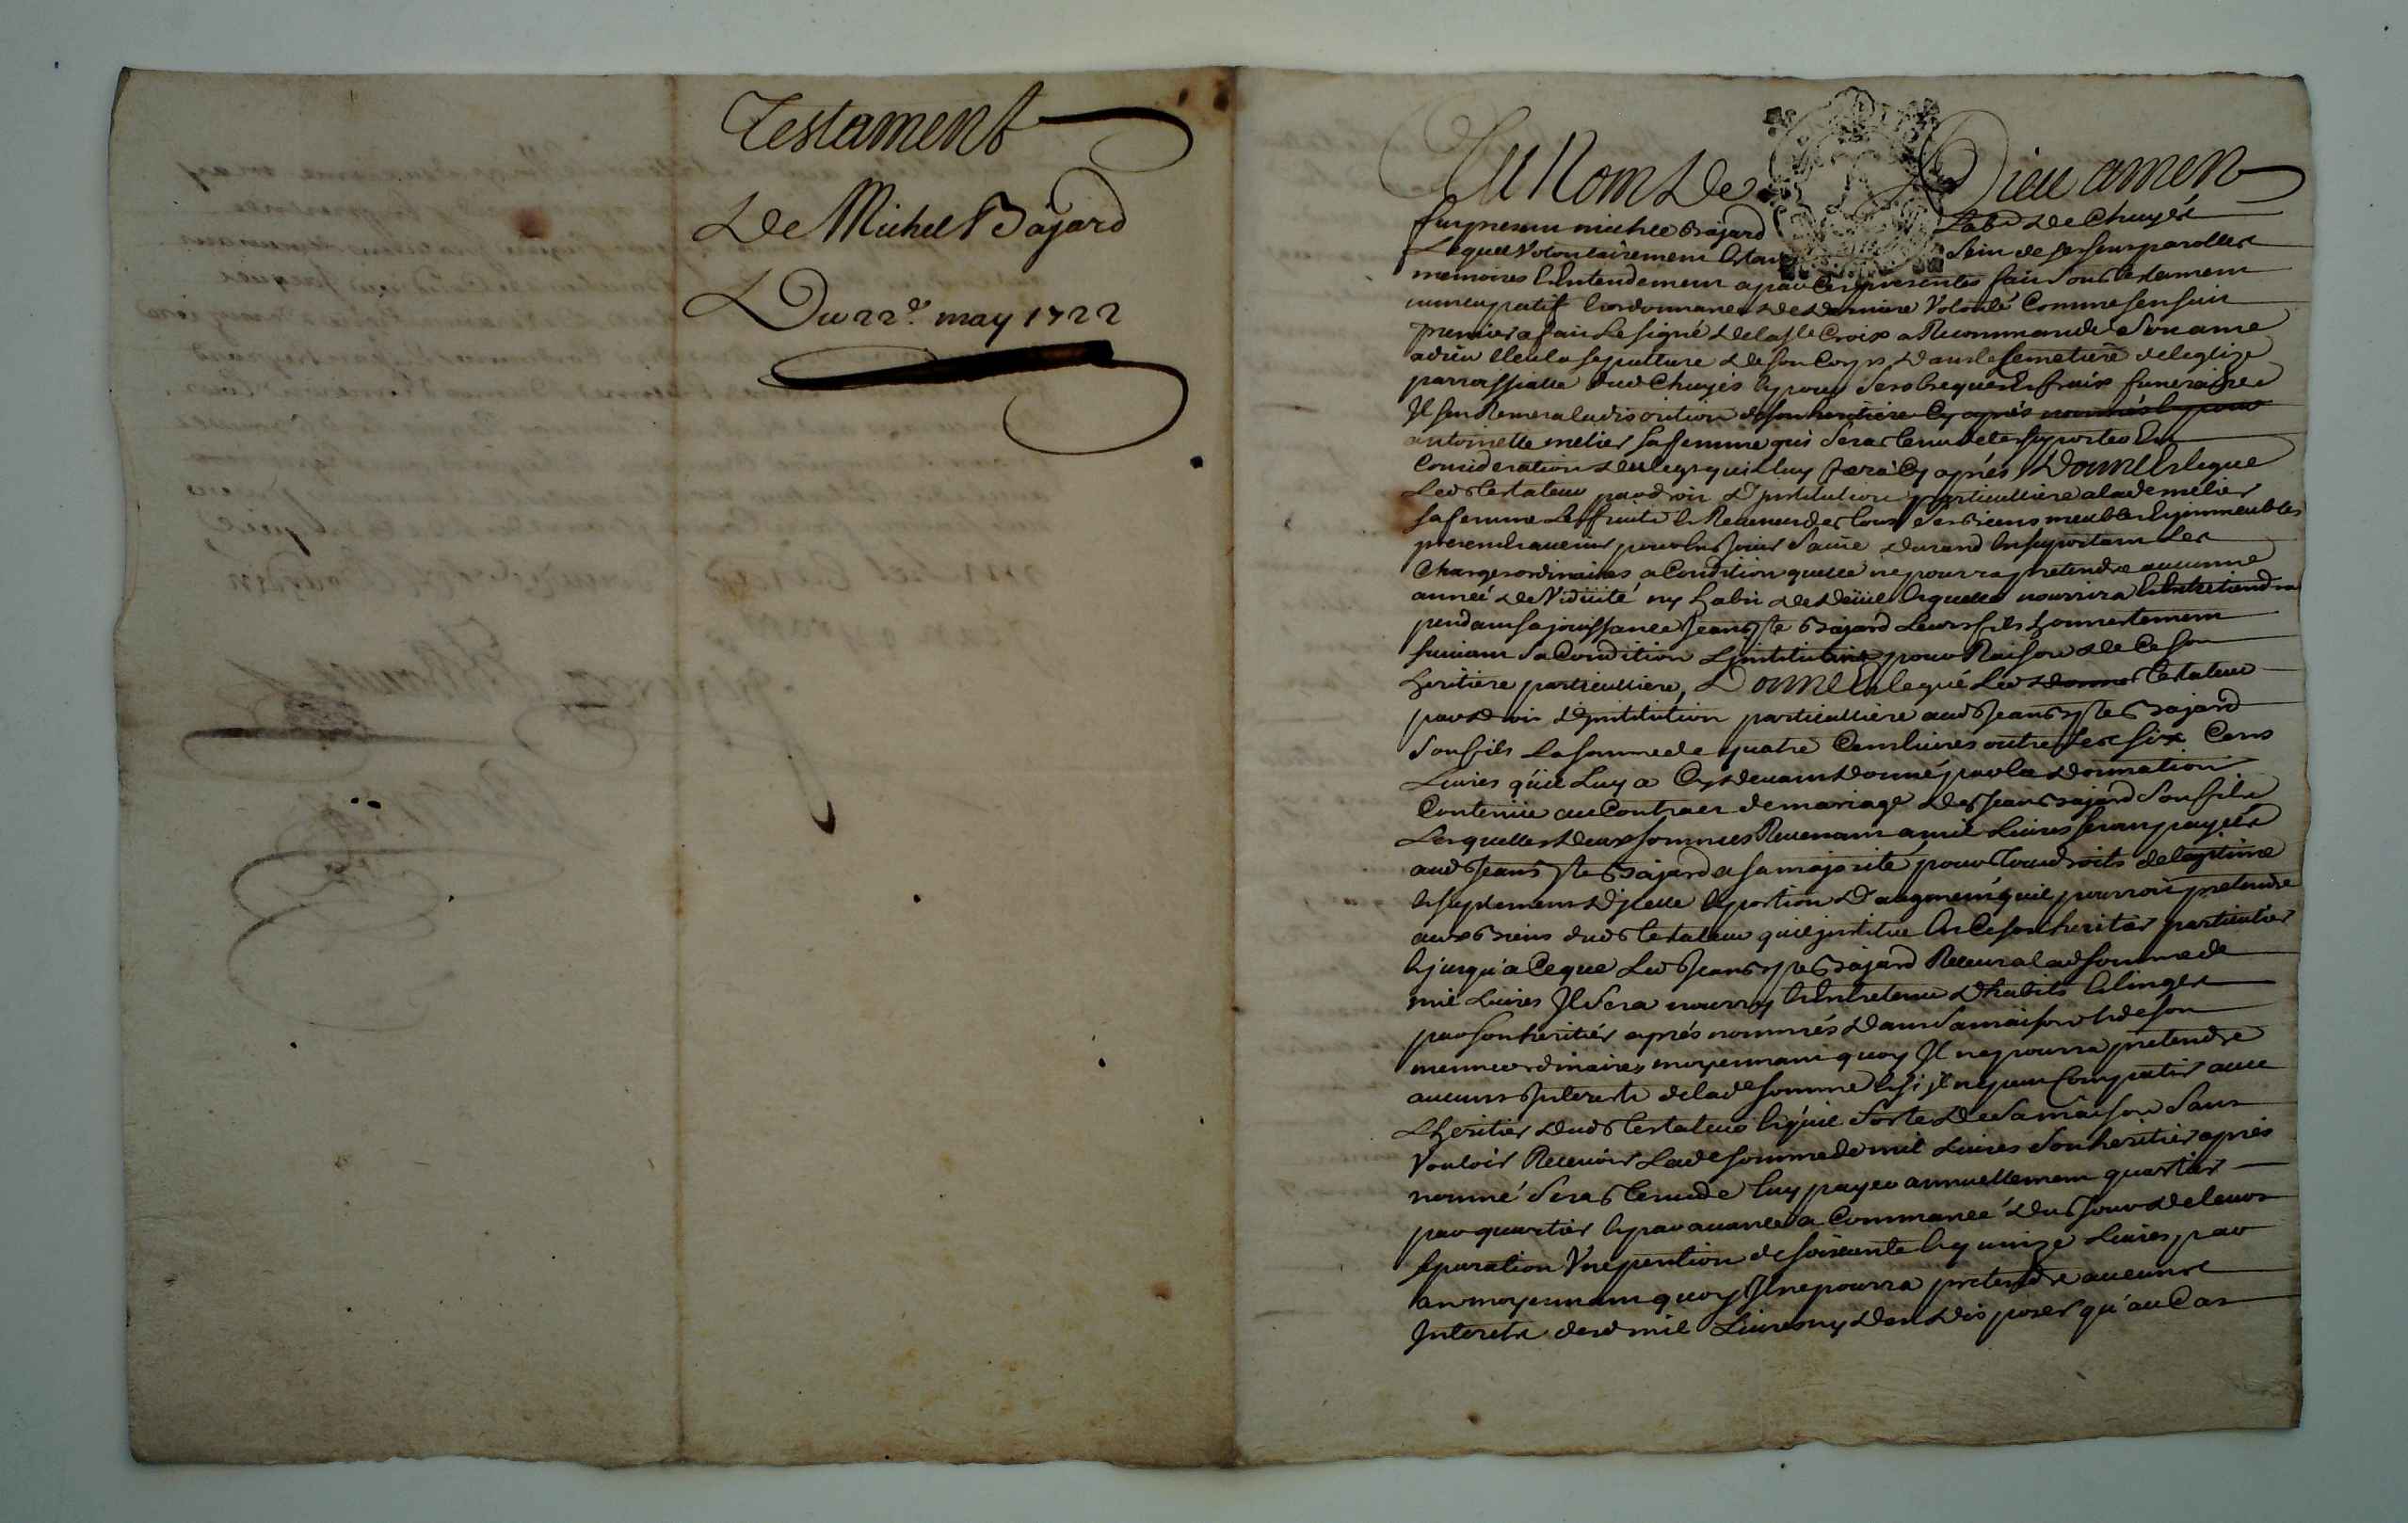 Testament
De Michel Bajard
Du 22e may 1722
Au Nom De Dieu amen
fut present michel Bajard Labr De Chuyés
Lequel Volontairement Estant Sein de ses sens parolles
memoires Et Entendement a par Ces presentes fait Son testament
nuncupatif Et ordonnance De Derniere Volonté Comme sensuit
premier a fait Le signe De la Ste Croix a Recommandé Son ame
a dieu Eleu la sepulture De son Corps Dans le Cemetiere de leglize
parroissialle dud Chuyés Et pour Ses obseques Et fraix funeraires
Il sen Remet a la discrition de son heritiere Cy aprés nommés Et pour
antoinette melier sa femme qui Sera tenu de les suporter En
Consideration Du legs quil luy fera Cy aprés, Donne Et legue
Led testateur par droit D'institution particulliere a lade melier
sa femme Les fruits Et Revenus de tous Ses Biens meubles Et immeubles
presents Et avenir pour En Jouir Sa vie Durand En suportant Les
Charges ordinaires a Condition quelle ne pourra pretendre aucunne
année De Viduité ny habit De Deüil Et quelle nourrira Et Entretiendra
pendant sa jouissance Jean Bte Bajard Leur fils honnestement
suivant Sa Condition L'instituant pour Raison De Ce son
heritiere particulliere, Donne Et legué Led Donne testateur
par Droit D'institution particulliere aud Jean Bte Bajard
Son fils La somme de quatre Cent livres outre Les six Cens
Livres qu'il Luy a Cy devant Donné par la Donnation
Contenüe au Contract de mariage De Jean Bajard Son fils
Lesquelles Deux sommes Revenant a mil Livres seront payés
aud Jean Bte Bajard a sa majorité pour tous droits de legitime
Et suplement D'jcelle Et portion D'augment quil pourroit pretendre
aux Biens dud testateur quil institue En Ce son heritier particulier
Et jusqu'a Ce que Led Jean Bte Bajard Recevra lad somme de
mil Livres Il Sera nourry Et Entretenu D'habits Et linges
par son heritier aprés nommés Dans Sa maison Et de son
mennu ordinaire, moyennant quoy Il ne pourra pretendre
aucuns Interests de lade somme Et si jl ne peut Compatir avec
L'heritier Dud testateur Et qu'il Sorte De Sa maison Sans
Vouloir Recevoir Lade somme de mil Livres Son heritier aprés
nommé Sera tenu de luy payer annuellement quartier
par quartier Et par avance a Commancé Du Jour De leur
separation Vne pention de soixante Et quinze Livres par
an moyennant quoy Il ne pourra pretendre aucuns
Interests desd mil Livres ny D'en Disposer qu'au Cas